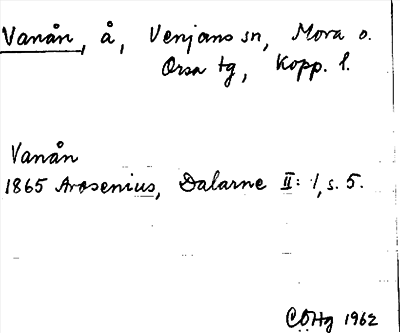 Vanån, å, Venjans sn, Mora o.
Orsa tg, Kopp. l.
Vanån
1865 Arosenius, Dalarne II: 1, s. 5.
COHg 1962